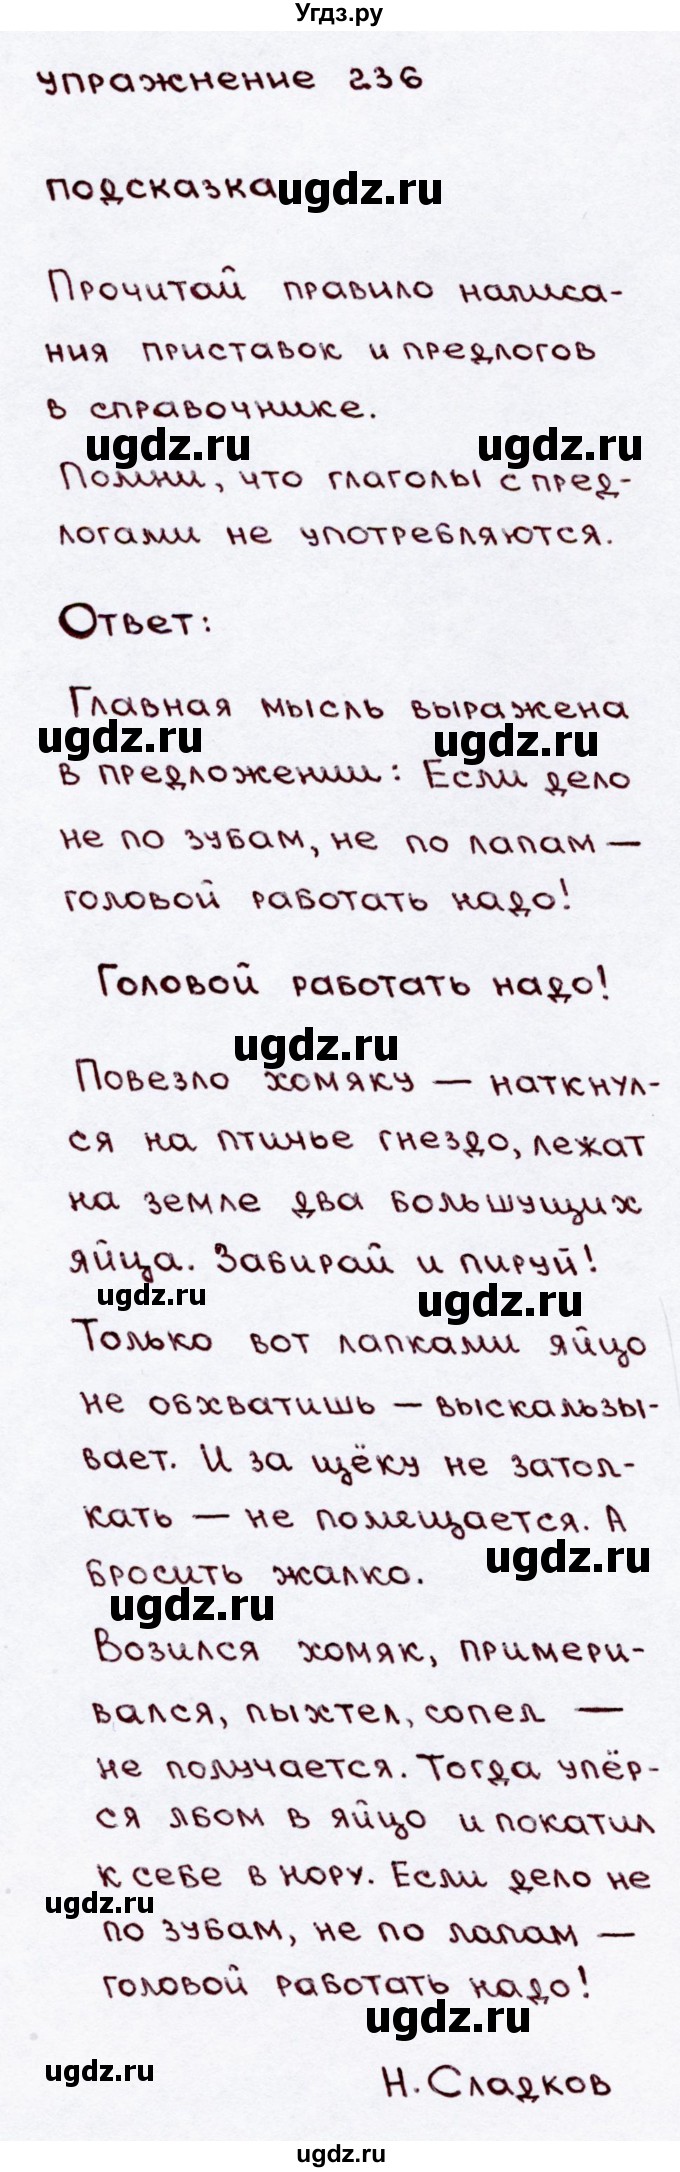 Угдз.ру
упражнение 236
подсказка ugdz.ru
Прочитай правило написа-
ния приставок и предлогов
в справочнике.
ugdz.ru ugdz.ru
Помни, что глаголы с пред-
логами не употребляются.
Ответ:
Главная мысль выражена
ugdz.ru ugdz.ru
в предложении: Если дело
не по зубам, не по лапам —
головой работать надо!
Головой работать надо!
ugdz.ru
Повезло хомяку — наткнул-
ся на птичье гнездо, лежат
на земле два большущих
яйца. Забирай и пируй!
ugdz.ru ugdz.ru
Только вот лапками яйцо
не обхватишь — выскальзы-
вает. И за щёку не затол-
кать — не помещается. А
ugdz.ru
бросить жалко.
ugdz.ru
Возился хомяк, примери-
вался, пыхтел, сопел —
не получается. Тогда упёр-
ся лбом в яйцо и покатил
к себе в нору. Если дело не
ugdz.ru
по зубам, не по лапам —
головой работать надо!
ugdz.ru
ugdz.ru
Н. Сладков
ugdz.ru